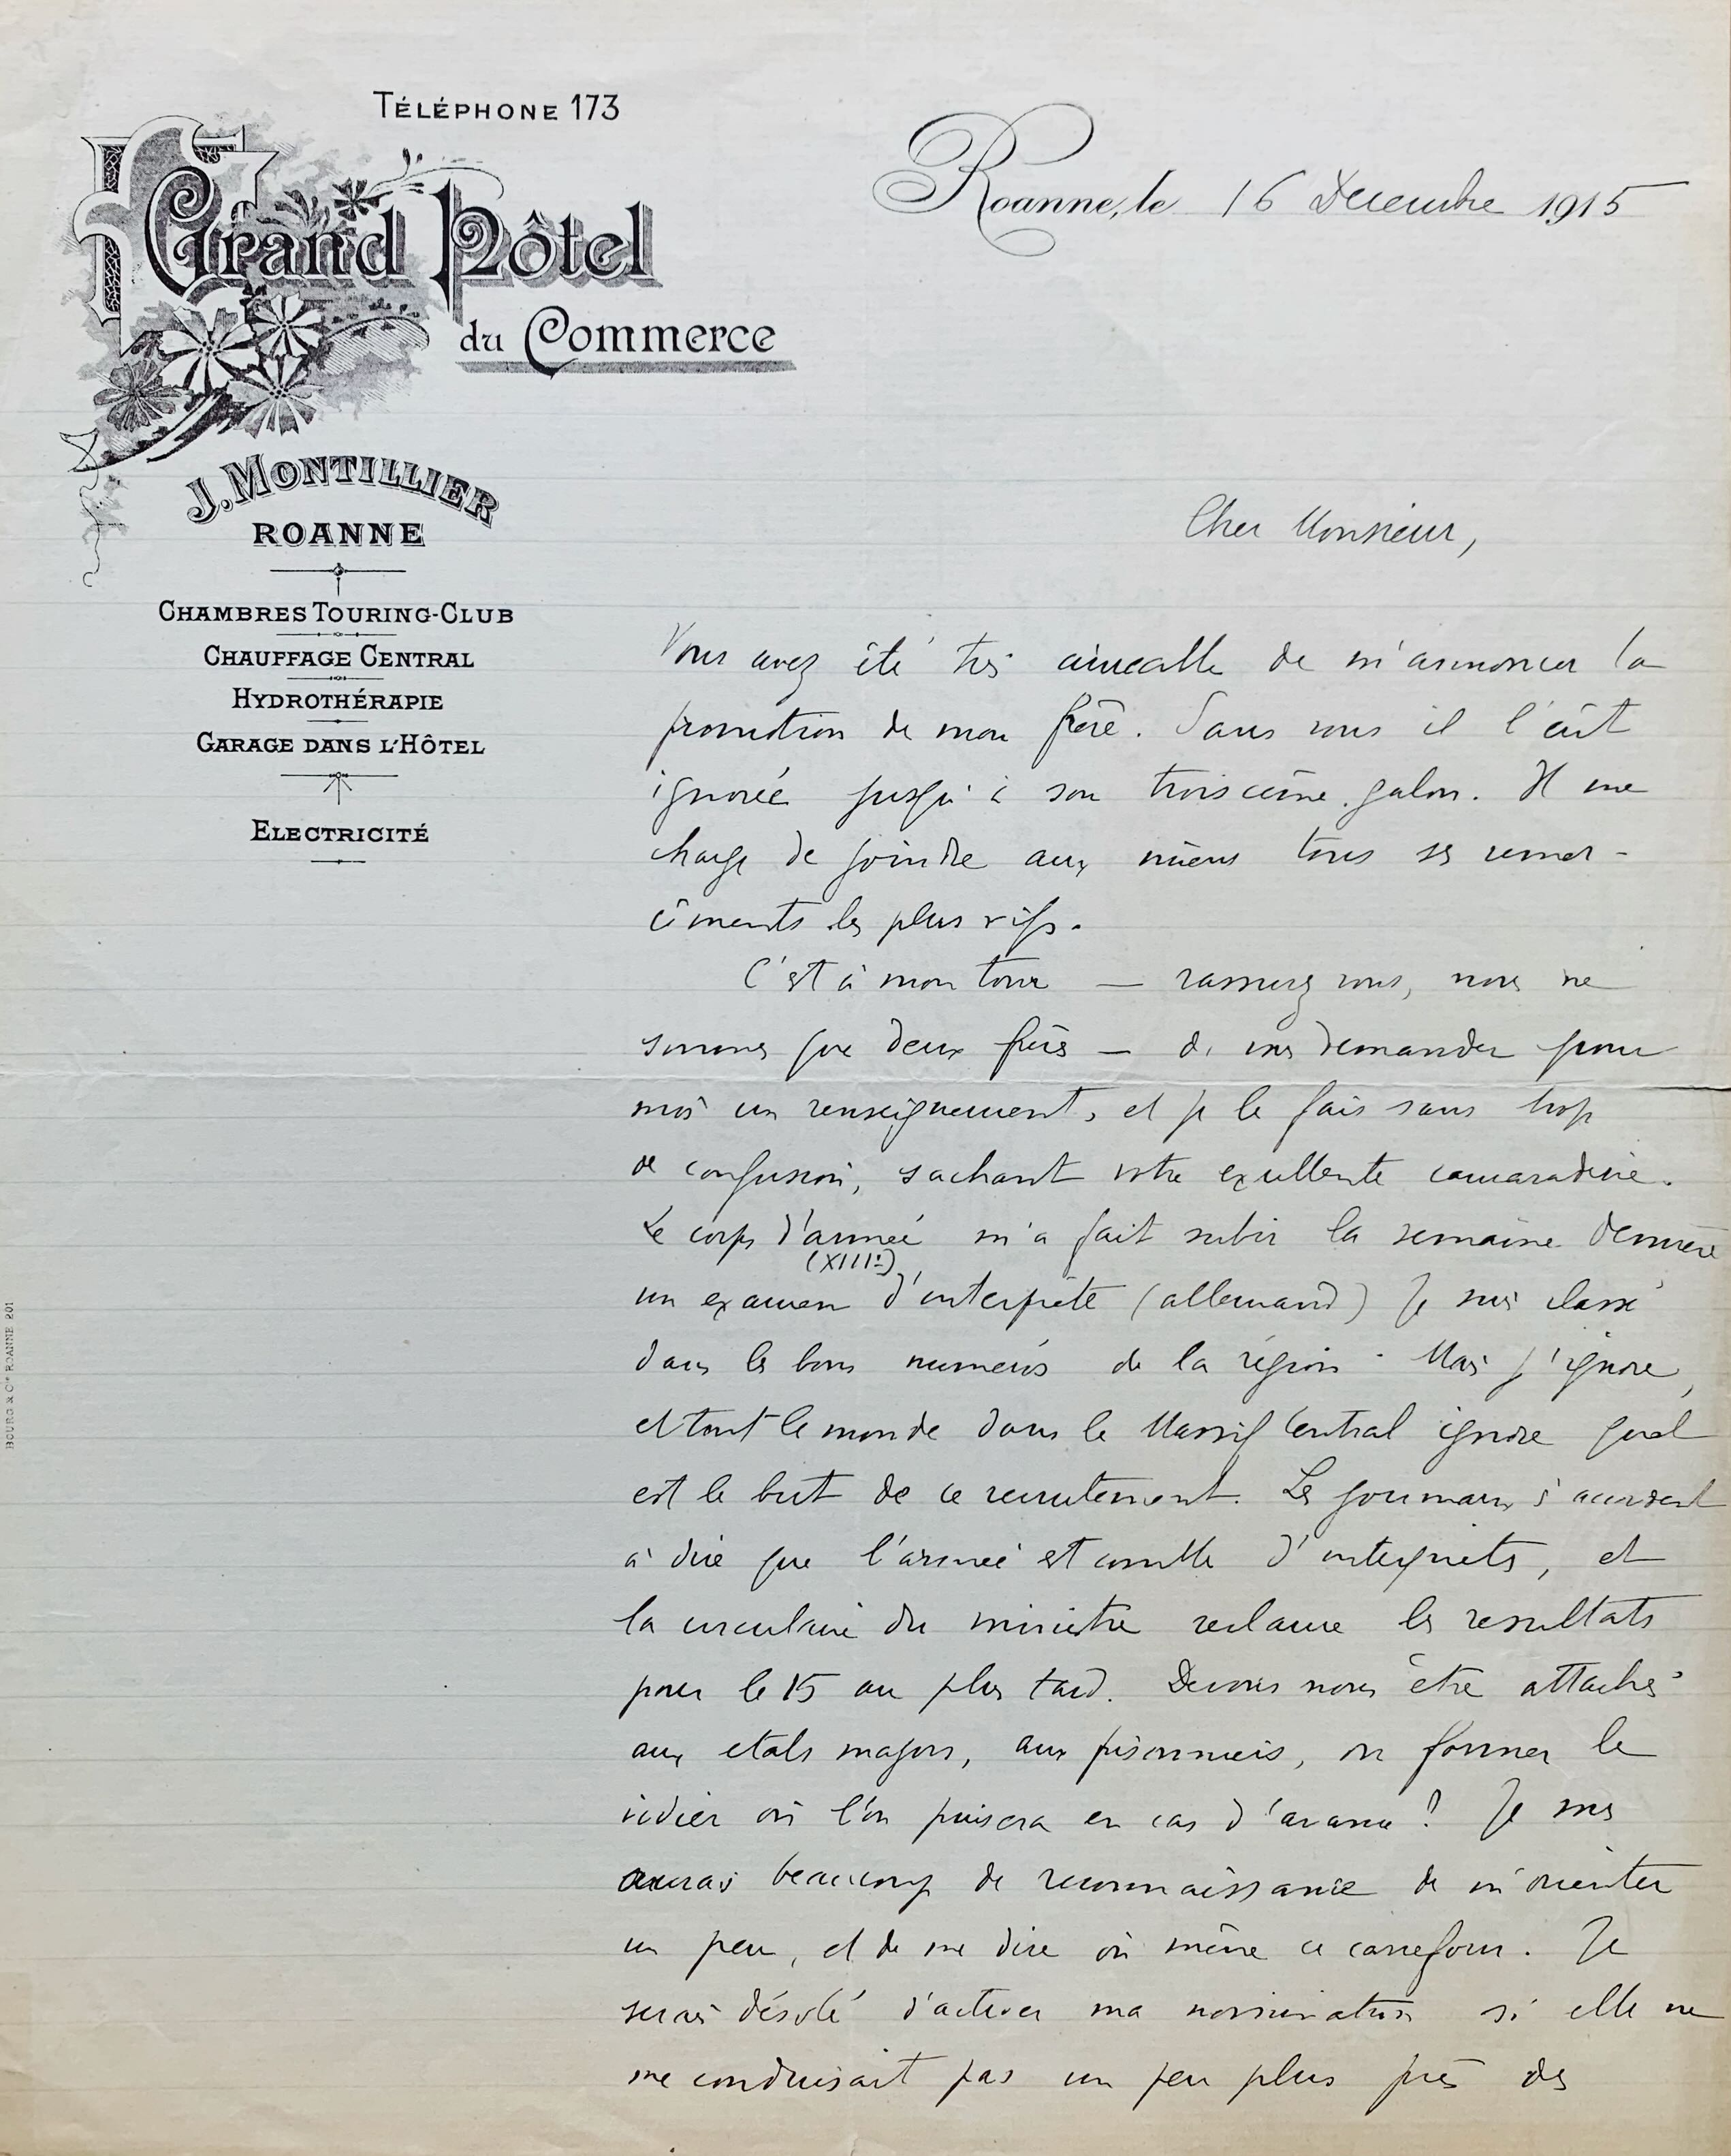 TÉLÉPHONE 173
Grand Hôtel
du Commerce
J. MONTILLIER
ROANNE
CHAMBRES TOURING-CLUB
CHAUFFAGE CENTRAL
HYDROTHÉRAPIE
GARAGE DANS L'HÔTEL
ELECTRICITÉ
BOURG & Cie ROANNE 201
Roanne, le 16 Decembre 1915
Cher Monsieur,
Vous avez été très aimable de m'annoncer la
promotion de mon frère. Sans vous il l'eût
ignorée jusqu'à son troisième galon. Il me
charge de joindre aux miens tous ses remer-
ciments les plus vifs.
C'est à mon tour — rassurez vous, nous ne
sommes que deux frères — de vous demander pour
moi un renseignement, et je le fais sans trop
de confusion, sachant votre excellente camaraderie.
Le corps d'armée m'a fait subir la semaine dernière
(XIIIe)
un examen d'interprète (allemand) Je suis classé
dans les bons numéros de la région. Mais j'ignore,
et tout le monde dans le Massif Central ignore quel
est le but de ce recrutement. Les journaux s'accordent
à dire que l'armée est comble d'interprètes, et
la circulaire du ministre reclame les resultats
pour le 15 au plus tard. Devons nous être attachés
aux etats majors, aux prisonniers, ou former le
vivier où l'on puisera en cas d'avance? Je vous
aurais beaucoup de reconnaissance de m'orienter
un peu, et de me dire où mène ce carrefour. Je
serais désolé d'activer ma nomination si elle ne
me conduisait pas un peu plus près des